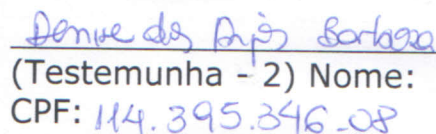 Denise dos Anjos Barbosa
(Testemunha - 2) Nome:
CPF: 114.395.346-08